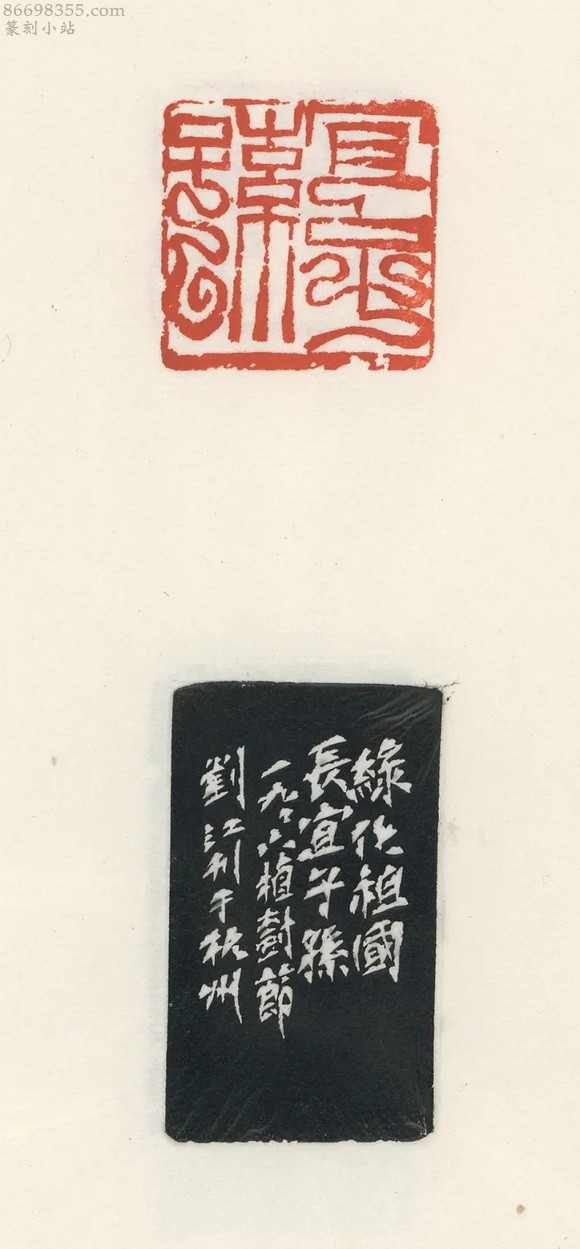 86698355.com
篆刻小站
綠化祖國
長宜子孫
一九八六植樹節
劉江刊于杭州